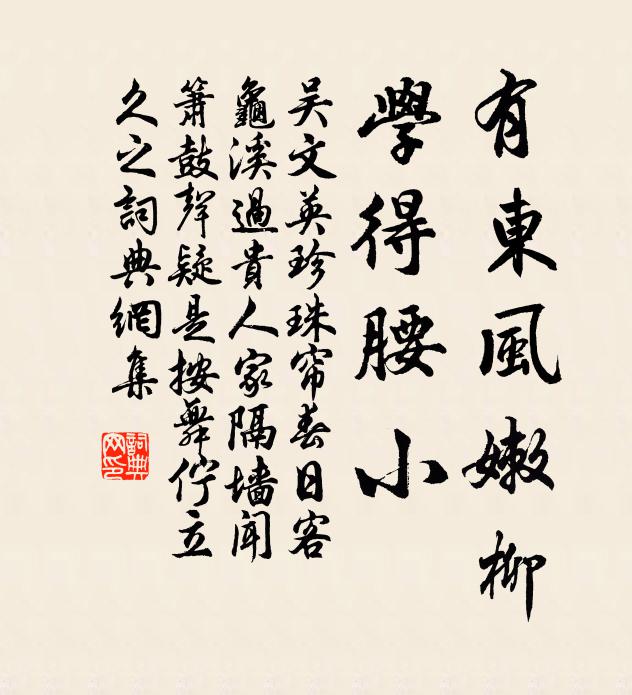 有東風嫩柳
學得腰小
吳文英珍珠帘春日客
龜溪過貴人家隔墙聞
簫鼓聲疑是按舞佇立
久之詞典網集
詞典
网印